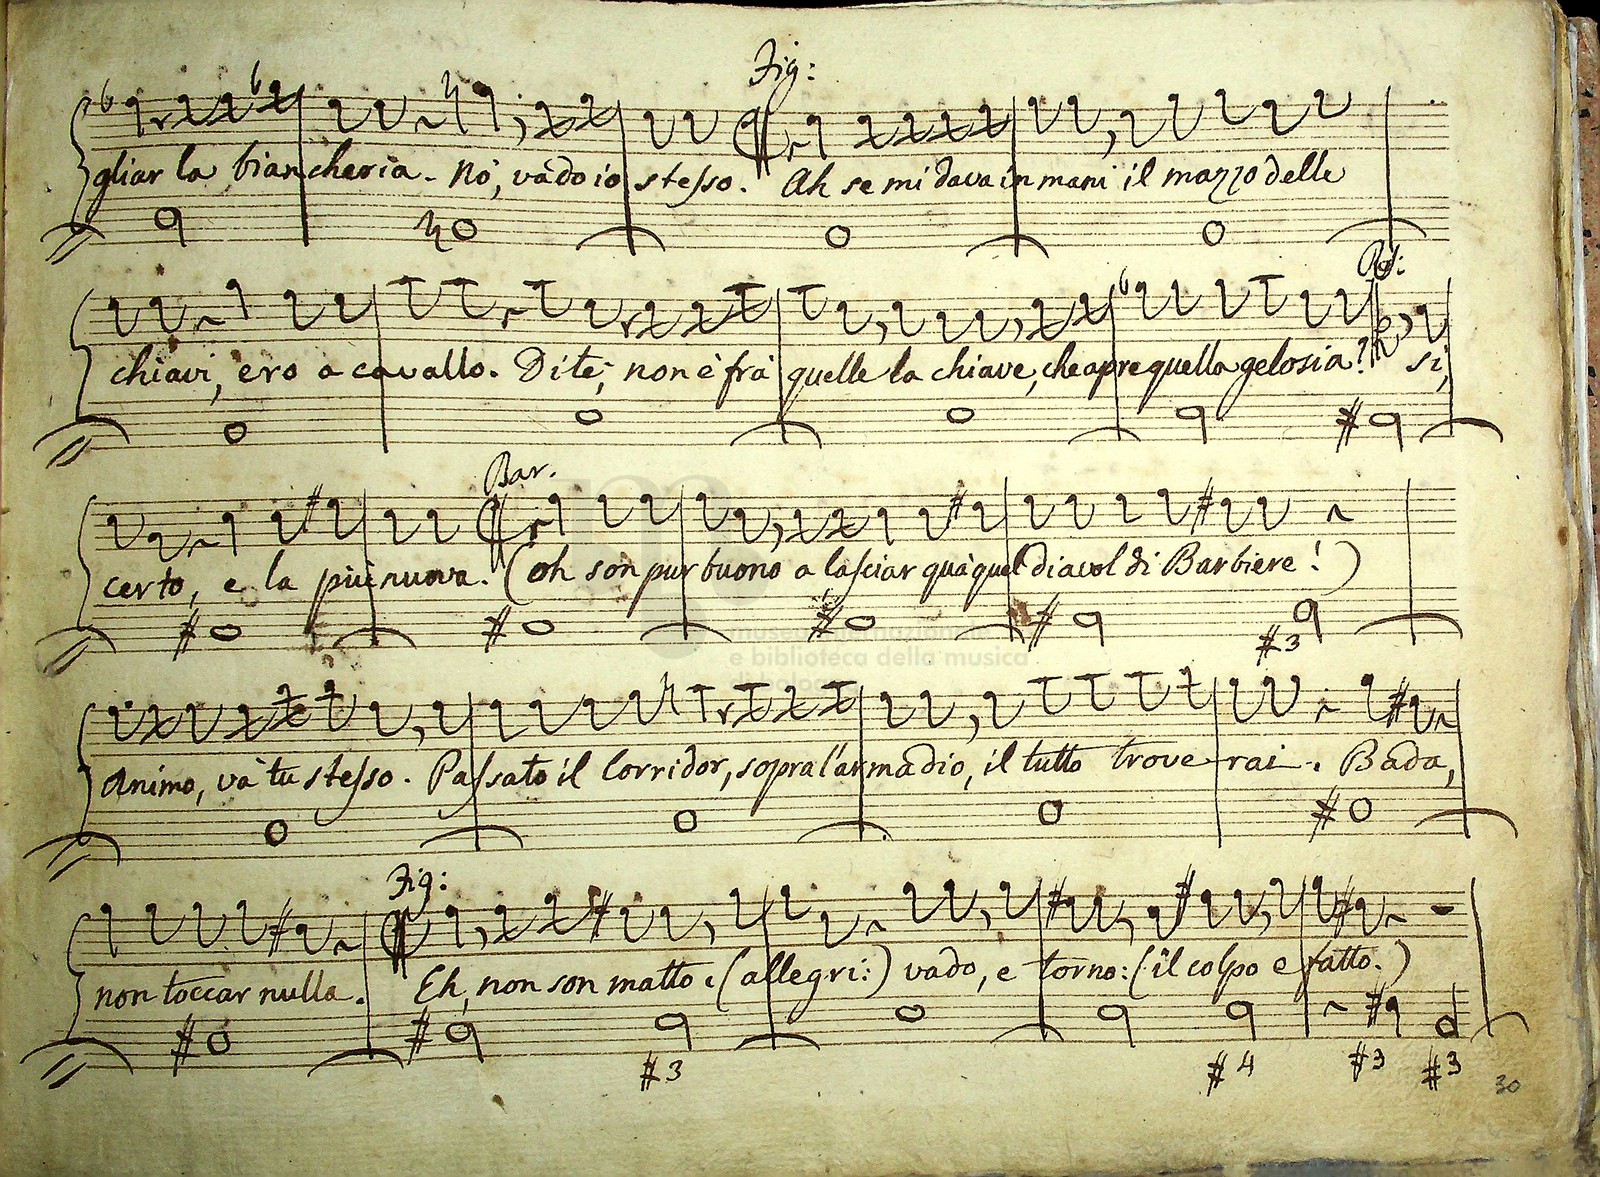 Fig:
gliar la biancheria. Nò, vàdo io stesso. Ah se mi dava in mani il mazzo delle
Ros:
chiavi, ero a cavallo. Dite, non è frà quelle la chiave, che apre quella gelosia? Sì,
Bar.
certo, e la più nuova. (oh son pur buono a lasciar quà quel diavol di Barbiere!)
museo internazionale
e biblioteca della musica
Animo, và tu stesso. Passato il Corridor, sopra l'armadio, il tutto troverai. Bada,
Fig:
non toccar nulla. Eh, non son matto: (allegri:) vado, e torno: (il colpo e fatto.)
#3
#3 #4 #3 #3
30